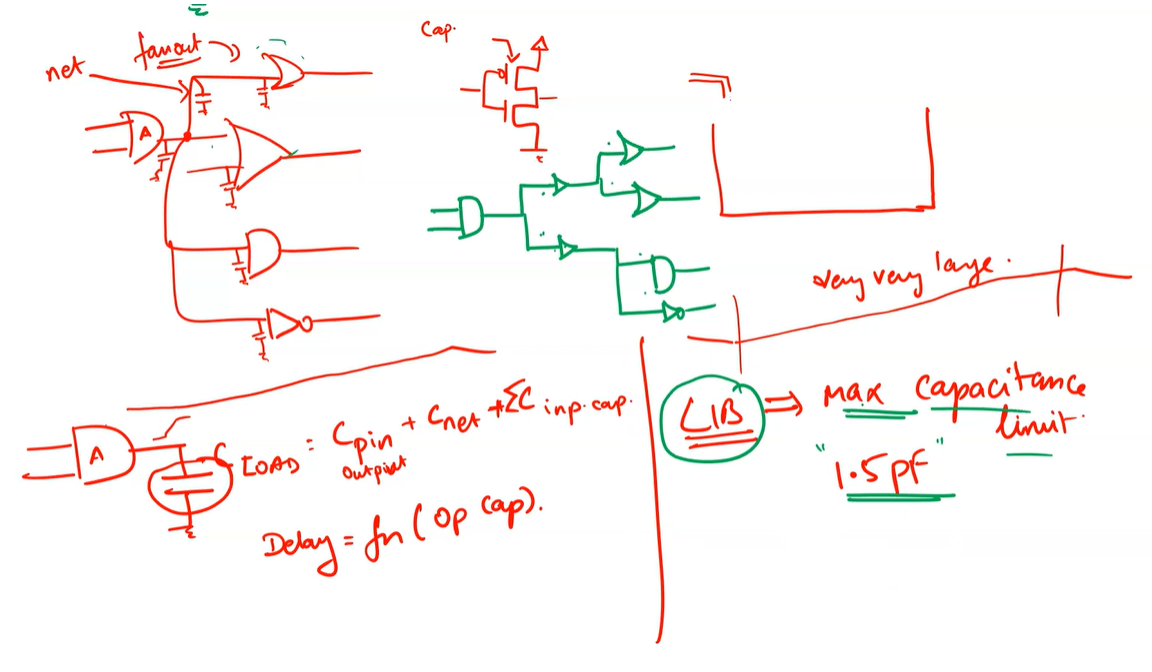 fanout
net
A
Cap.
very very large.
A
C LOAD = Cpin + Cnet + ΣC inp. cap.
output
Delay = fn ( Op Cap).
LIB ⇒ max capacitance
limit.
"1.5 pF"